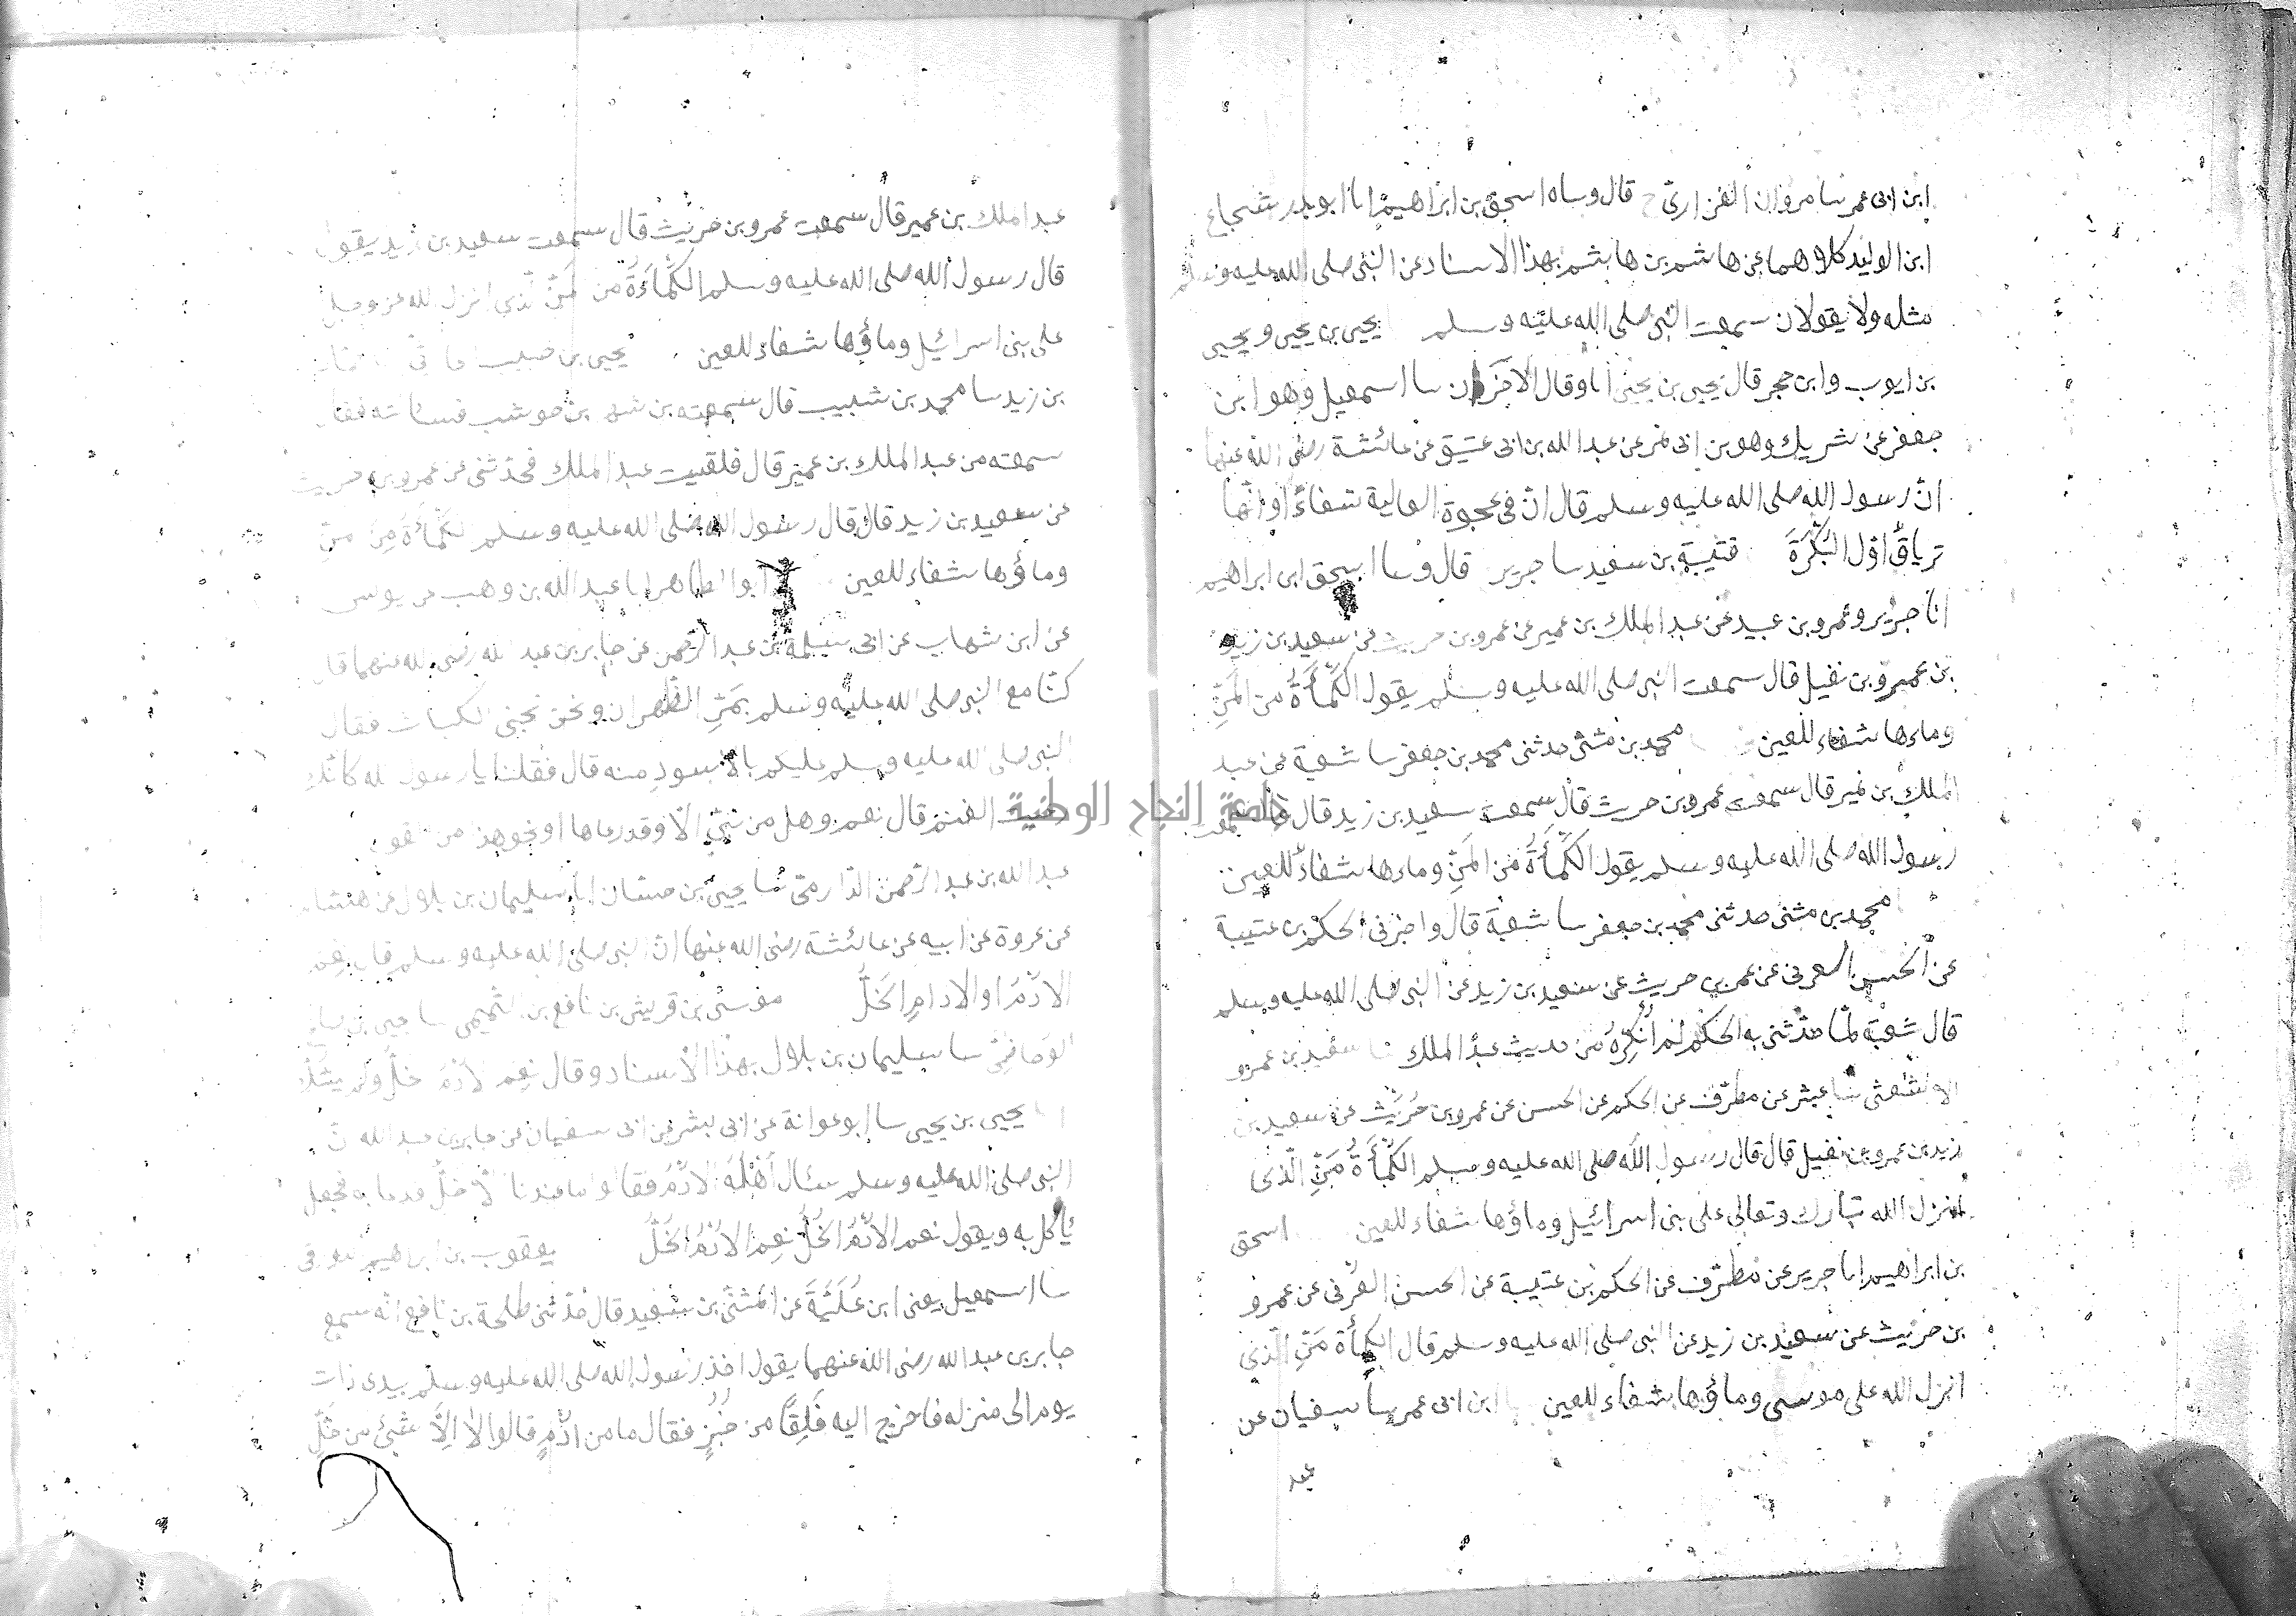 ابن ابى عمر سا مروان الفزارىّ ح قال وساه اسحق بن ابراهيم انا ابو بدر شجاع
ابن الوليد كلاهما عن هاشم بن هاشم بهذا الاسناد عن النبى صلى الله عليه وسلم
مثله ولا يقولان سمعت النبى صلى الله عليه وسلم يحيى بن يحيى ويحيى
بن ايوب وابن حجر قال يحيى بن يحيى انا وقال الاخَرَان سا اسمعيل وهو ابن
جعفر عن شريك وهو بن ابى نمر عن عبد الله بن ابى عتيق عن عائشة رضى الله عنها
انّ رسول الله صلى الله عليه وسلم قال انّ فى عجوة العالية شفاءً او انّها
ترياقٌ اوّل البُكْرَةَ قتيبة بن سعيد سا جرير قال وسا اسحق ابن ابراهيم
انا جرير وعمرو بن عبيد عن عبد الملك بن عمير عن عمرو بن حريث عن سعيد بن زيد
بن عمرو بن نفيل قال سمعت النبى صلى الله عليه وسلم يقول الكَمْأَةُ من المَنِّ
وماءها شفاء للعين محمد بن مثنى حدثنى محمد بن جعفر سا شعبة عن عبد
الملك بن عمير قال سمعت عمرو بن حريث قال سمعت سعيد بن زيد قال قال سمعت
رسول الله صلى الله عليه وسلم يقول الكَمْأَةُ من المَنِّ وماءها شفاءٌ للعين
محمد بن مثنى حدثنى محمد بن جعفر سا شعبة قال واخبرنى الحكم بن عتيبة
عن الحسن العرنى عن عمرو بن حريث عن سعيد بن زيد عن النبى صلى الله عليه وسلم
قال شعبة لمّا حدّثنى به الحكم لم اُنْكِرْهُ من حديث عبد الملك سا سعيد بن عمرو
الاشعثى سا عبثر عن مطرّف عن الحكم عن الحسن عن عمرو بن حُرَيْث عن سعيد بن
زيد بن عمرو بن نفيل قال قال رسول الله صلى الله عليه وسلم الكَمْأَةُ مَنِّ الّذى
انزل الله تبارك وتعالى على بنى اسرائيل وماؤها شفاء للعين اسحق
بن ابراهيم انا جرير عن مطرّف عن الحكم بن عتيبة عن الحسن العرنى عن عمرو
بن حريث عن سعيد بن زيد عن النبى صلى الله عليه وسلم قال الكمأة مَنِّ الّذي
انزل الله على موسى وماؤها شفاء للعين ابن ابى عمر سا سفيان عن
عبد
عبد الملك بن عمير قال سمعت عمرو بن حريث قال سمعت سعيد بن زيد يقول
قال رسول الله صلى الله عليه وسلم الكَمْأَةُ من المَنِّ الّذي انزل الله عز وجل
على بنى اسرائيل وماؤها شفاء للعين يحيى بن حبيب
بن زيد سا محمد بن شبيب قال سمعته بن شهر بن حوشب فسالته فقال
سمعته من عبد الملك بن عمير قال فلقيت عبد الملك فحدّثنى عن عمرو بن حريث
عن سعيد بن زيد قال قال رسول الله صلى الله عليه وسلم الكَمْأَةُ مِنَ المنّ
وماؤها شفاء للعين ابو الطاهر انا عبد الله بن وهب عن يونس
عن ابن شهاب عن ابى سلمة بن عبد الرّحمن عن جابر بن عبد الله رضى الله عنهما قال
كنّا مع النبى صلى الله عليه وسلم بمَرِّ الظّهران ونحن نجنى الكباث فقال
النبى صلى الله عليه وسلم عليكم بالاسودِ منه قال فقلنا يا رسول الله كانّك
رعيت الغنم قال نعم وهل من نبىٍّ الّا وقد رعاها او نحو هذا من القول
عبد الله بن عبد الرّحمن الدّارمىّ سا يحيى بن حسّان انا سليمان بن بلال عن هشام
عن عروة عن ابيه عن عائشة رضى الله عنها انّ النبى صلى الله عليه وسلم قال نعم
الادُمُ او الادامِ الخَلُّ موسى بن قريش بن نافع بن التّميمى سا يحيى بن صالح
الوحاظىّ سا سليمان بن بلال بهذا الاسناد وقال نعم الادُمُ خلٌّ ولم يشكّ
يحيى بن يحيى سا ابو عوانة عن ابى بشر عن ابى سفيان عن جابر بن عبد الله انّ
النبى صلى الله عليه وسلم سئال اَهْلَهُ الادُمُ فقالوا ما عندنا الّا خلٌّ فدعا به فجعل
يأكل به ويقول نعم الادُمُ الخَلُّ نعم الادُمُ الخَلُّ يعقوب بن ابراهيم الدورقى
سا اسمعيل يعنى ابن عُلَيَّةَ عن المثنّى بن سعيد قال حدّثنى طلحة بن نافع انّه سمع
جابر بن عبد الله رضى الله عنهما يقول اخذ رسول الله صلى الله عليه وسلم بيدى ذات
يوم الى منزله فاخرج اليه فَلِقًا من خُبْزٍ فقال ما من اُدُمٍ قالوا لا اِلَّا شَىْءٌ من خَلٍّ
جامعة النجاح الوطنية